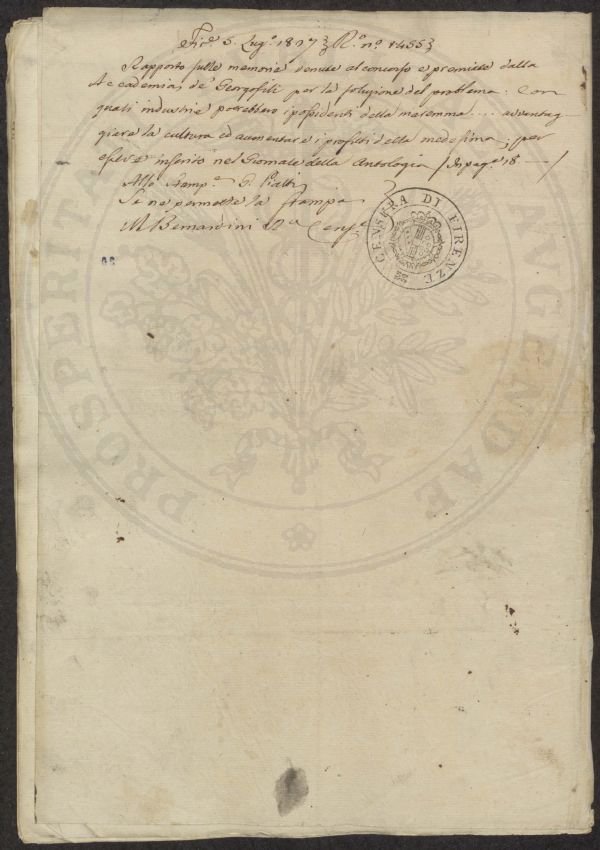 Fir.e 5. Lug.o 1827 } R.o n.o 1455 }
Rapporto sulle memorie venute al concorso e premiate dalla
Accademia de' Georgofili per la soluzione del problema: Con
quali industrie potrebbero i possidenti della maremma .... avvantag
giare la cultura ed aumentare i profitti della medesima; per
essere inserito nel Giornale della Antologia / di pag.e 18 — /
Allo Stamp.e G. Piatti
Se ne permette la stampa
M Bernardini Cens.e
CENSURA DI FIRENZE
PROSPERITATI AUGENDAE